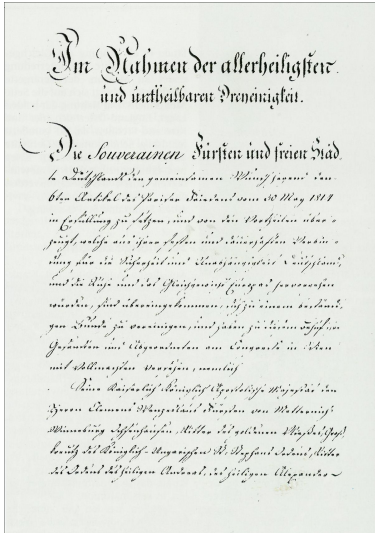 Im Nahmen der allerheiligsten
und untheilbaren Dreyeinigkeit.
Die Souverainen Fürsten und freien Städ-
te Deutschlands den gemeinsamen Wunsch hegend den
6ten Artikel des Pariser Friedens vom 30 May 1814
in Erfüllung zu setzen, und von den Vortheilen über-
zeugt, welche aus ihrer festen und dauerhaften Verbin-
dung für die Sicherheit und Unabhängigkeit Deutschlands,
und die Ruhe und das Gleichgewicht Europas hervorgehen
würden, sind übereingekommen, sich zu einem beständi-
gen Bunde zu vereinigen, und haben zu diesem Behuf ihre
Gesandten und Abgeordneten am Congresse in Wien
mit Vollmachten versehen, nemlich
Seine Kaiserlich Königlich Apostolische Majestät den
Herrn Clemens Wenzeslaus Fürsten von Metternich-
Winneburg Ochsenhausen, Ritter des goldenen Vließes, Groß-
kreutz des Königlich-Ungarischen St. Stephans Ordens, Ritter
des Ordens des heiligen Andreas, des heiligen Alexander-